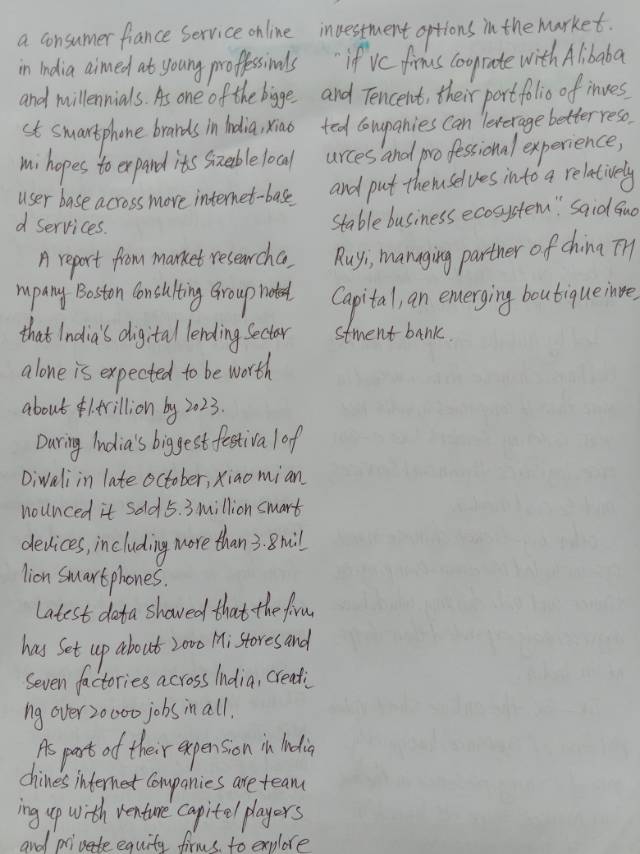 a consumer fiance service online
in India aimed at young proffessinals
and millennials. As one of the bigge
st smartphone brands in India, xiao
mi hopes to expand its sizable local
user base across more internet-base
d services.
A report from market research co_
mpany Boston Conslting Group noted
that India's digital lending sector
alone is expected to be worth
about $1.trillion by 2023.
During India's biggest festival of
Diwali in late october, xiaomi an
nounced it sold 5.3 million smart
devices, including more than 3.8 mil_
lion smartphones.
Latest data showed that the firm
has set up about 2000 Mi stores and
seven factories across India, creati_
ng over 20000 jobs in all.
As part of their expension in India
chines internet companies are team
ing up with venture capital players
and private equity firms, to explore
investment options in the market.
"if VC firms cooprate with Alibaba
and Tencent, their portfolio of inves_
ted companies can leverage better reso_
urces and professional experience,
and put themselves into a relatively
stable business ecosystem". said Guo
Ruyi, managing partner of china TH
Capital, an emerging boutique inve_
stment bank.